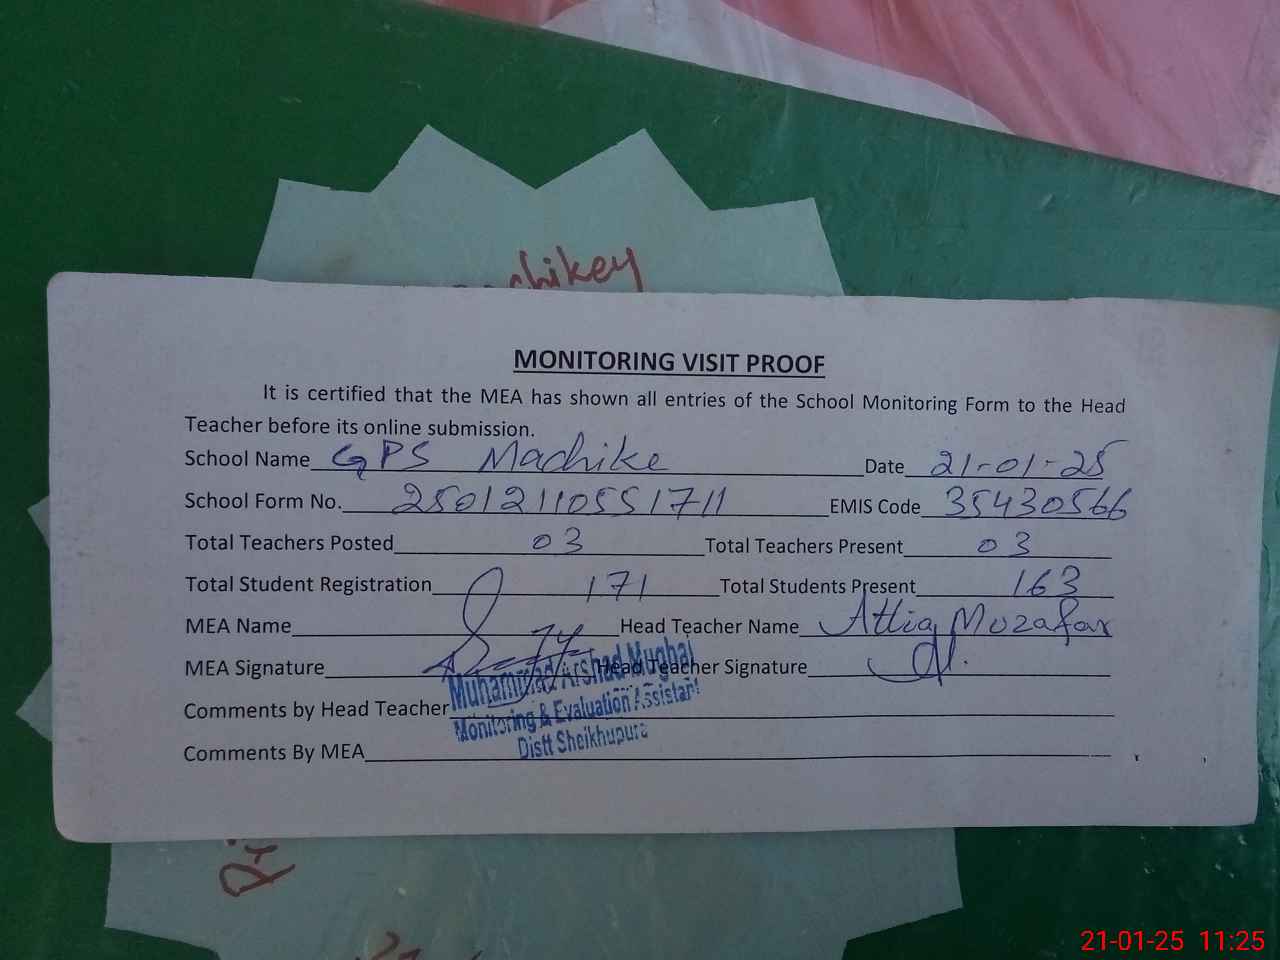 chikey
MONITORING VISIT PROOF
It is certified that the MEA has shown all entries of the School Monitoring Form to the Head
Teacher before its online submission.
School Name GPS Machike Date 21-01-25
School Form No. 25012110551711 EMIS Code 35430566
Total Teachers Posted 03 Total Teachers Present 03
Total Student Registration 171 Total Students Present 163
MEA Name Head Teacher Name Attia Mozafar
MEA Signature Head Teacher Signature
Muhammad Arshad Mughal
Comments by Head Teacher
Monitoring & Evaluation Assistant
Distt Sheikhupura
Comments By MEA
21-01-25 11:25